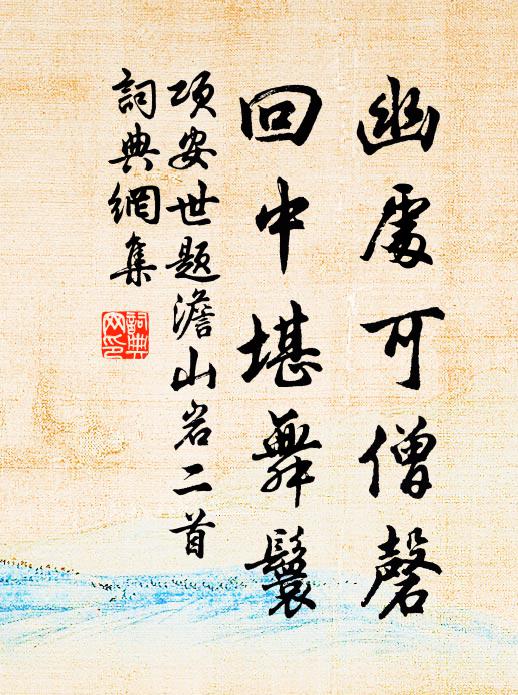 幽處可僧磬
回中堪舞鬟
項安世題澹山岩二首
詞典網集
詞典
网印